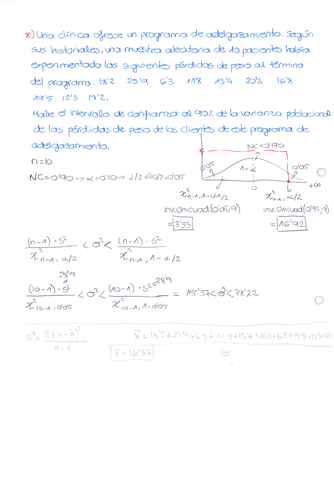 8) Una clínica ofrece un programa de adelgazamiento. Según
sus historiales, una muestra aleatoria de 10 pacientes había
experimentado las siguientes pérdidas de peso al término
del programa: 18'2 25'9 6'3 11'8 15'4 20'3 16'8
19'5 12'3 17'2.
Halle el intervalo de confianza al 90% de la varianza poblacional
de las pérdidas de peso de los clientes de este programa de
adelgazamiento.
n=10
NC=0'90
NC=0'90 -> α=0'10 -> α/2 = 0'05
0'05
1-α
0'05
0
+∞
inv.chicuad(0'05,9)
= 3'33
inv.chicuad(0'95,9)
= 16'92
(n-1)·S² / χ² n-1, α/2 < σ² < (n-1)·S² / χ² n-1, 1-α/2
28'9
(10-1)·S² / χ² 10-1, 0'05 < σ² < (10-1)·S² 28'9 / χ² 10-1, 0'05 = 15'37 < σ² < 78'22
S² = Σ(x-x̄)² / n-1
x̄ = 16'37
10